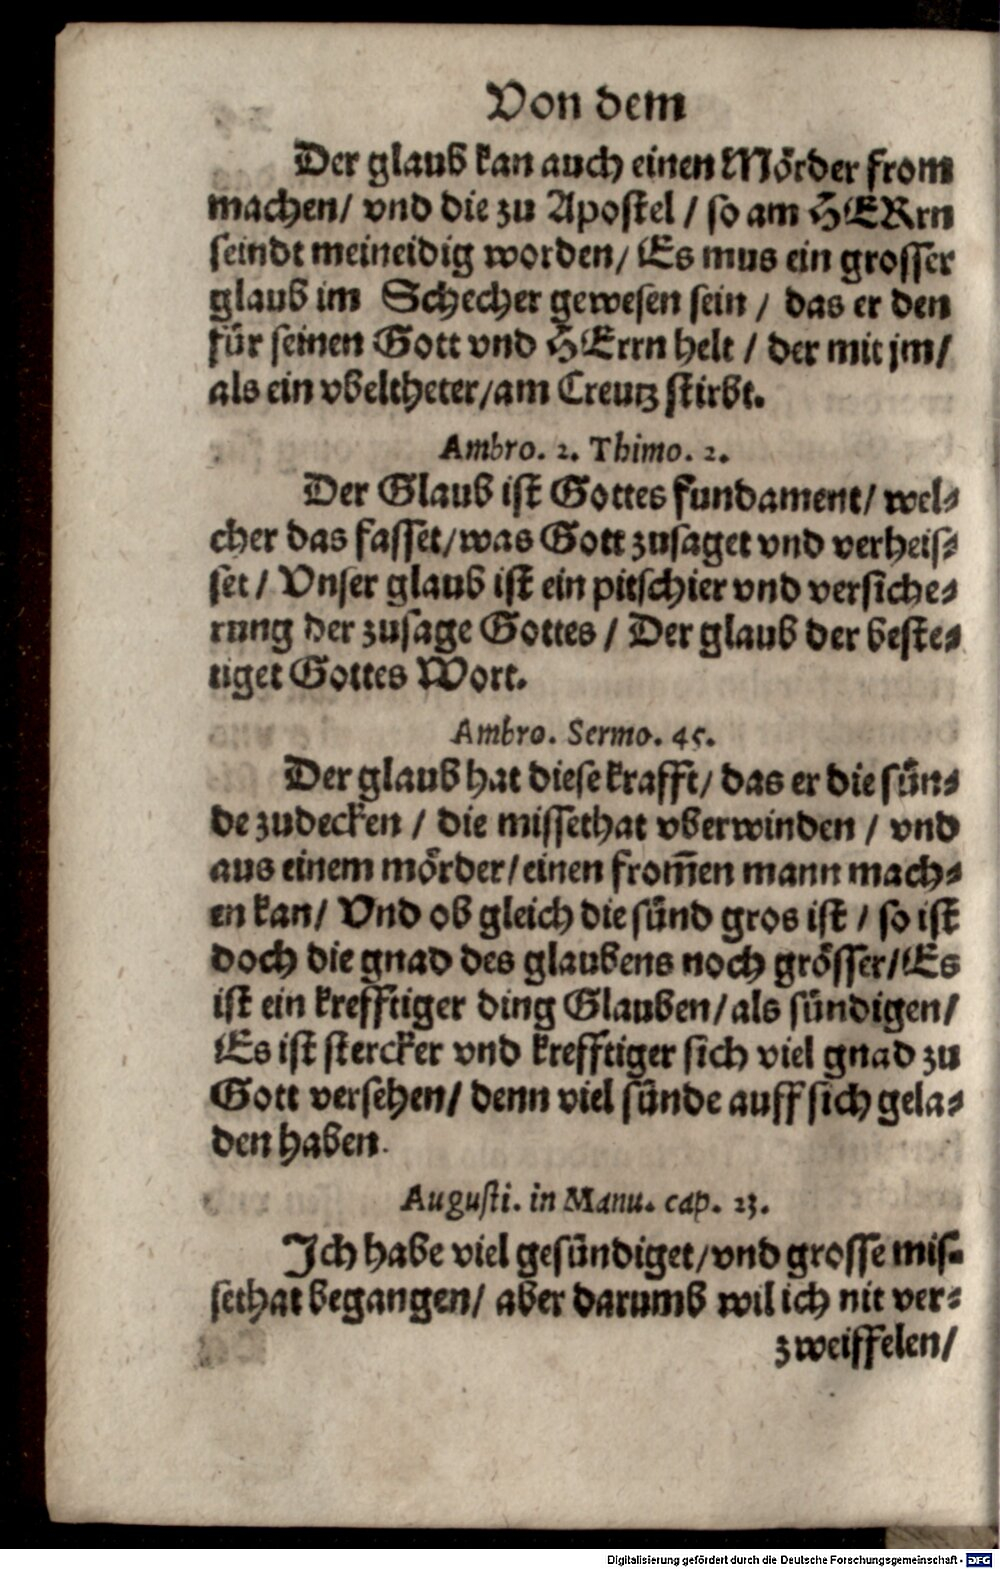 Von dem
Der glaub kan auch einen Mörder from
machen/ vnd die zu Apostel / so am HERrn
seindt meineidig worden/ Es mus ein grosser
glaub im Schecher gewesen sein / das er den
für seinen Gott vnd HErrn helt / der mit jm/
als ein vbeltheter/am Creutz stirbt.
Ambro. 2. Thimo. 2.
Der Glaub ist Gottes fundament/ wel-
cher das fasset/was Gott zusaget vnd verheis-
set / Vnser glaub ist ein pitschier vnd versiche-
rung der zusage Gottes / Der glaub der beste-
tiget Gottes Wort.
Ambro. Sermo. 45.
Der glaub hat diese krafft/ das er die sün-
de zudecken / die missethat vberwinden / vnd
aus einem mörder/einen from̃en mann mach-
en kan/ Vnd ob gleich die sünd gros ist / so ist
doch die gnad des glaubens noch grösser/Es
ist ein krefftiger ding Glauben/als sündigen/
Es ist stercker vnd krefftiger sich viel gnad zu
Gott versehen/ denn viel sünde auff sich gela-
den haben.
Augusti. in Manu. cap. 23.
Ich habe viel gesündiget/vnd grosse mis-
sethat begangen/ aber darumb wil ich nit ver-
zweiffelen/
Digitalisierung gefördert durch die Deutsche Forschungsgemeinschaft - DFG